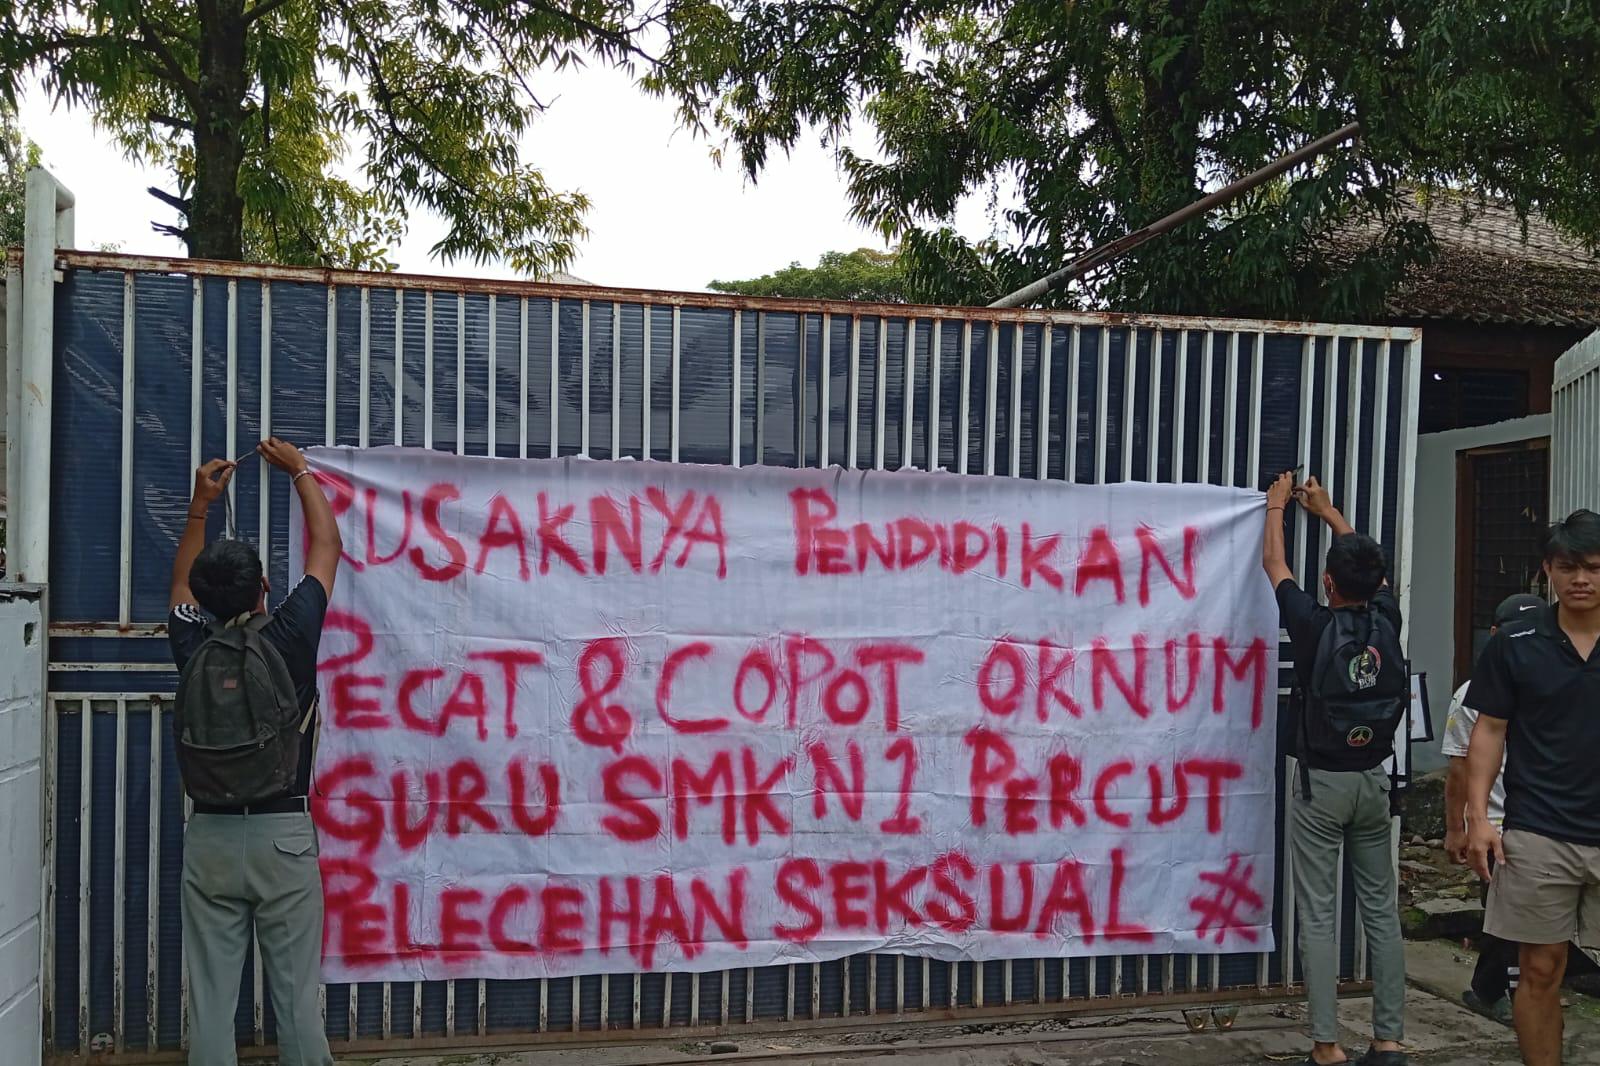 RUSAKNYA PENDIDIKAN
PECAT & COPOT OKNUM
GURU SMK N 1 PERCUT
PELECEHAN SEKSUAL #